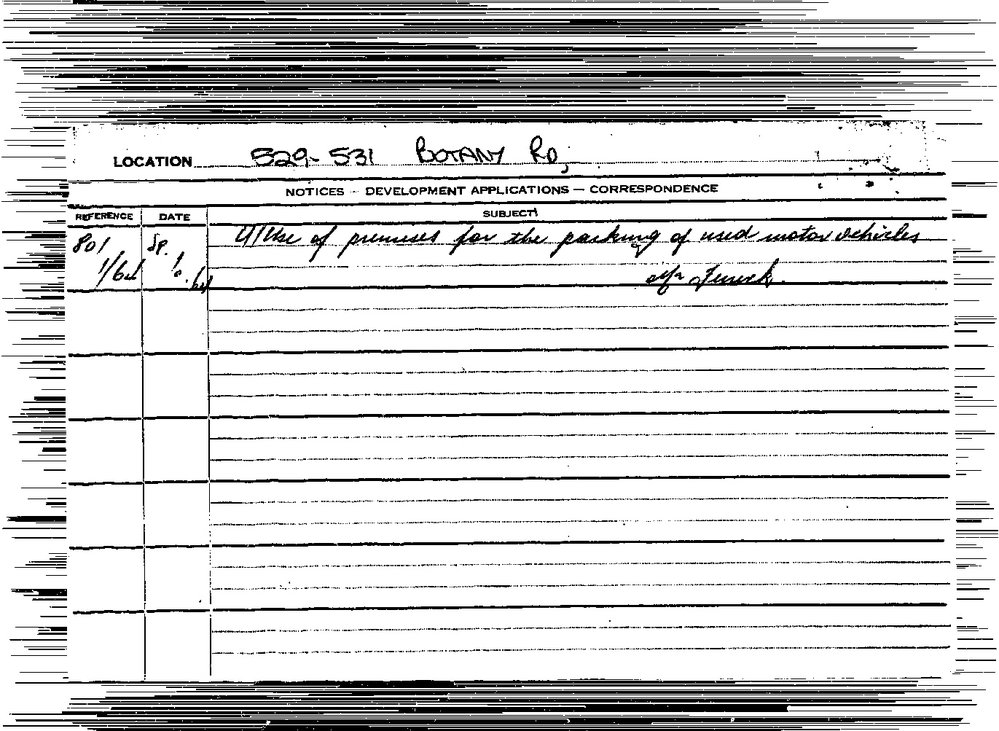 LOCATION 529-531 BOTANY RD,
NOTICES - DEVELOPMENT APPLICATIONS — CORRESPONDENCE
REFERENCE DATE SUBJECT
801 Sp. U/Use of premises for the parking of used motor vehicles
1/64